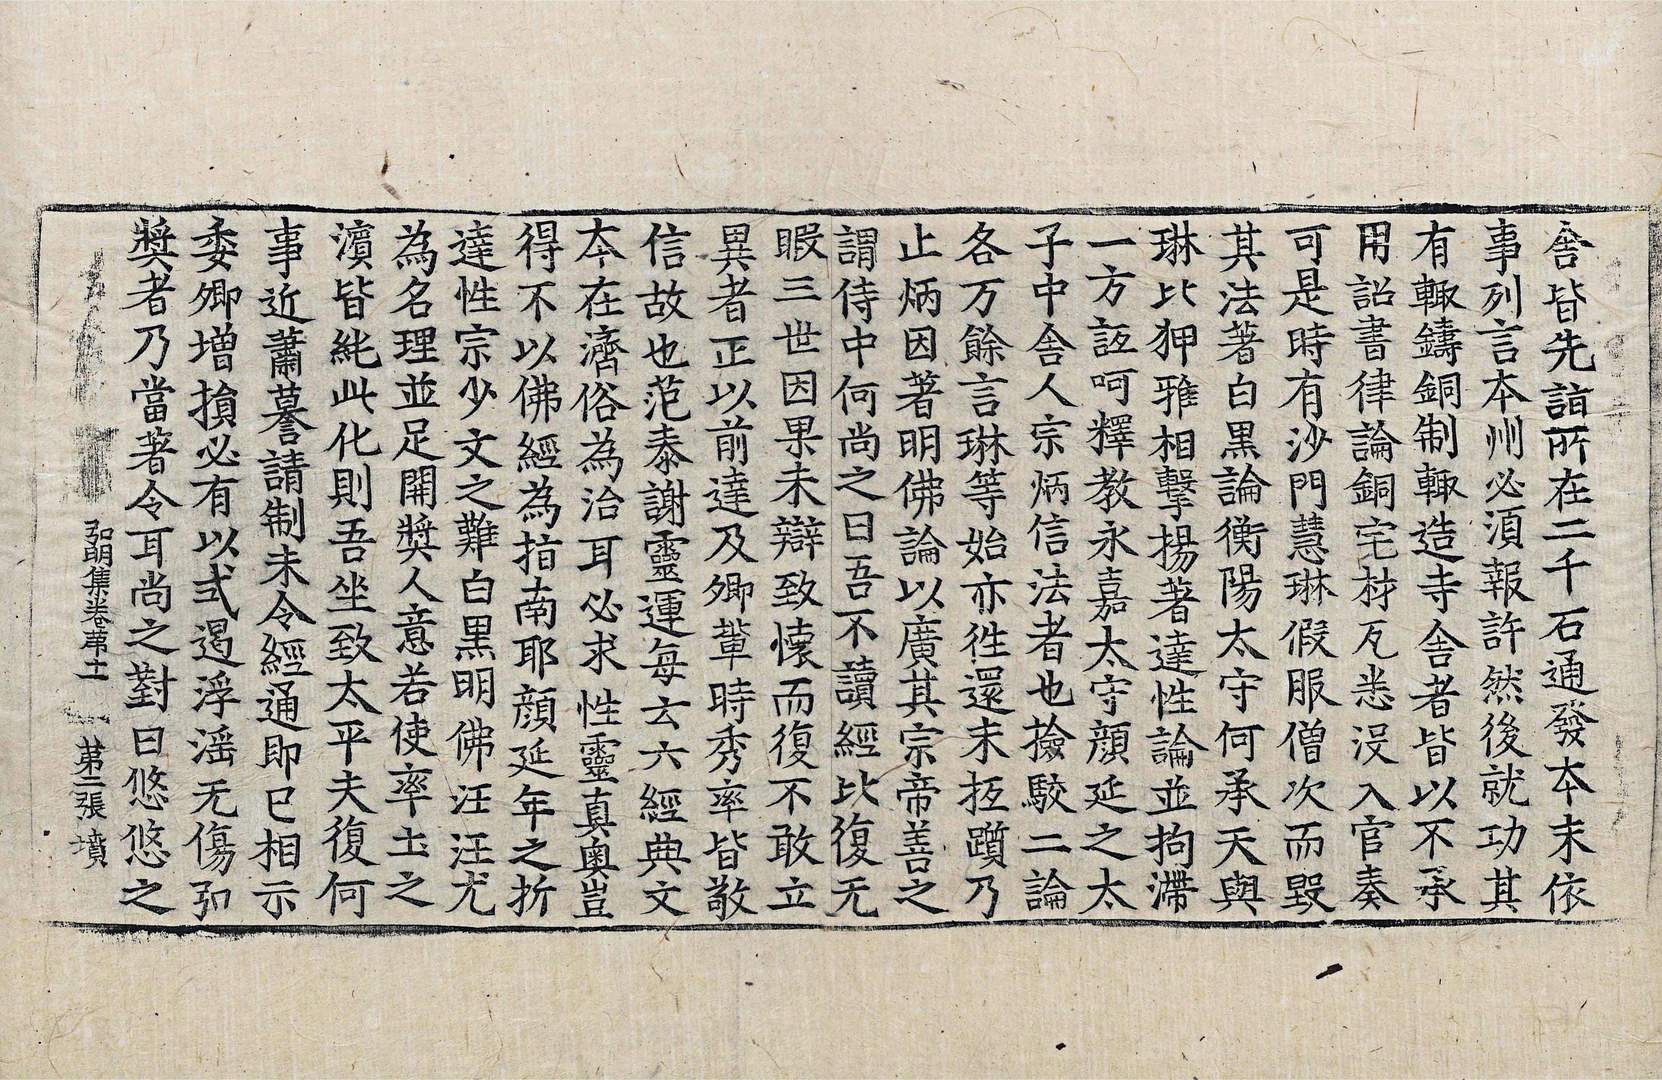 舎皆先詣所在二千石通發本末依
事列言本州必湏報許然後就功其
有輙鑄銅制輙造寺舎者皆以不承
用詔書律論銅宅材瓦悉没入官奏
可是時有沙門慧琳假服僧次而毀
其法著白黒論衡陽太守何承天與
琳比狎雅相擊揚著達性論並拘滯
一方詆呵釋教永嘉太守顔延之太
子中舎人宗炳信法者也撿駮二論
各万餘言琳等始亦徃還未抵躓乃
止炳因著明佛論以廣其宗帝善之
謂侍中何尚之曰吾不讀經比復无
暇三世因果未辯致懐而復不敢立
異者正以前達及卿輩時秀率皆敬
信故也范泰謝靈運每云六經典文
本在濟俗為治耳必求性靈真奥豈
得不以佛經為指南耶顔延年之折
達性宗少文之難白黒明佛汪汪尤
為名理並足開奬人意若使率土之
濵皆純此化則吾坐致太平夫復何
事近蕭謩請制未令經通即已相示
委卿增損必有以式遏浮滛无傷弘
奬者乃當著令耳尚之對曰悠悠之
弘明集卷苐十一 第二張 墳